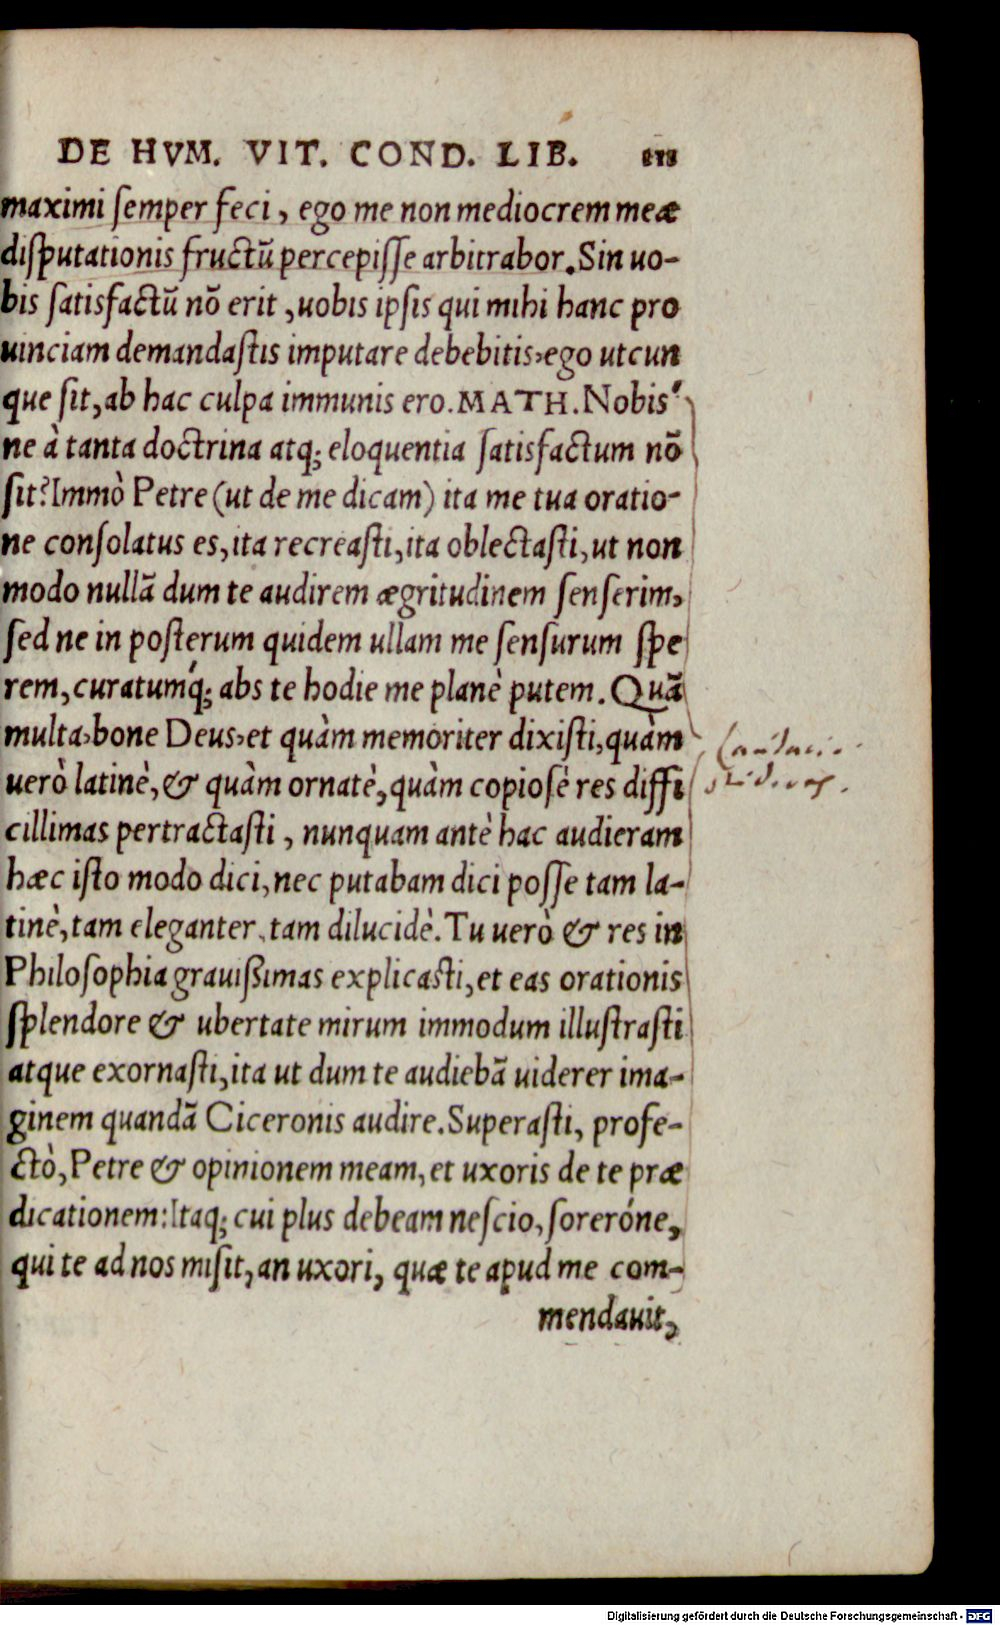 DE HVM. VIT. COND. LIB.
maximi semper feci, ego me non mediocrem meæ
disputationis fructū percepisse arbitrabor. Sin uo-
bis satisfactū nō erit, uobis ipsis qui mihi hanc pro
uinciam demandastis imputare debebitis, ego utcun
que sit, ab hac culpa immunis ero. MATH. Nobis'
ne à tanta doctrina atq; eloquentia satisfactum nō
sit? Immò Petre (ut de me dicam) ita me tua oratio-
ne consolatus es, ita recreasti, ita oblectasti, ut non
modo nullā dum te audirem ægritudinem senserim,
sed ne in posterum quidem ullam me sensurum spe
rem, curatumq́; abs te hodie me planè putem. Quā
multa, bone Deus, et quàm memoriter dixisti, quàm
uerò latinè, & quàm ornatè, quàm copiosè res diffi
cillimas pertractasti, nunquam antè hac audieram
hæc isto modo dici, nec putabam dici posse tam la-
tinè, tam eleganter, tam dilucidè. Tu uerò & res in
Philosophia grauißimas explicasti, et eas orationis
splendore & ubertate mirum immodum illustrasti
atque exornasti, ita ut dum te audiebā uiderer ima-
ginem quandā Ciceronis audire. Superasti, profe-
ctò, Petre & opinionem meam, et uxoris de te præ
dicationem: Itaq; cui plus debeam nescio, sororéne,
qui te ad nos misit, an uxori, quæ te apud me com-
mendauit,
Digitalisierung gefördert durch die Deutsche Forschungsgemeinschaft - DFG